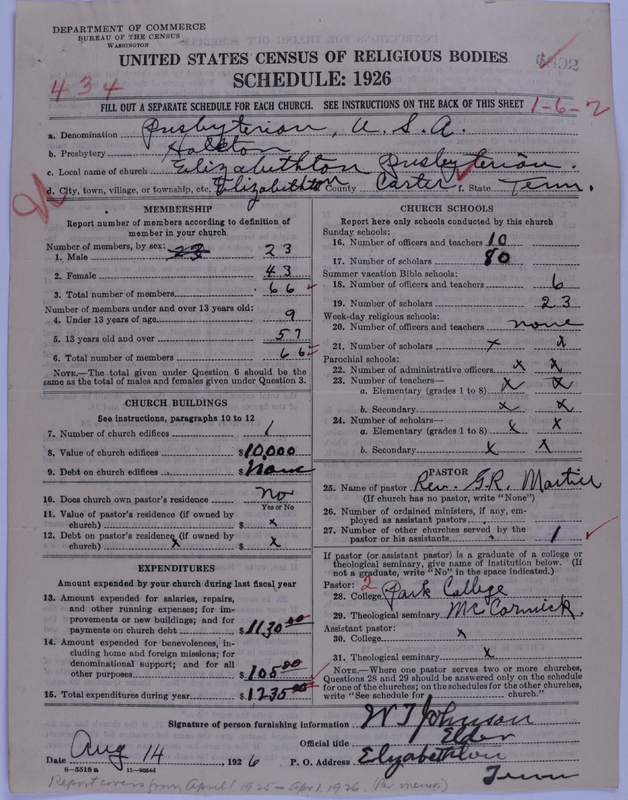 DEPARTMENT OF COMMERCE
BUREAU OF THE CENSUS
WASHINGTON
UNITED STATES CENSUS OF RELIGIOUS BODIES
SCHEDULE: 1926
434
FILL OUT A SEPARATE SCHEDULE FOR EACH CHURCH. SEE INSTRUCTIONS ON THE BACK OF THIS SHEET 1-6-2
a. Denomination Presbyterian, U. S. A.
b. Presbytery Holston
c. Local name of church Elizabethton Presbyterian.
d. City, town, village, or township, etc. Elizabethton County Carter f. State Tenn.
MEMBERSHIP
Report number of members according to definition of
member in your church
Number of members, by sex: 23
1. Male 23
2. Female 43
3. Total number of members 66
Number of members under and over 13 years old:
4. Under 13 years of age 9
5. 13 years old and over 57
6. Total number of members 66
NOTE.—The total given under Question 6 should be
the same as the total of males and females given under Question 3.
CHURCH BUILDINGS
See instructions, paragraphs 10 to 12
7. Number of church edifices 1
8. Value of church edifices $10,000
9. Debt on church edifices $None
10. Does church own pastor's residence No
Yes or No
11. Value of pastor's residence (if owned by
church) $ x
12. Debt on pastor's residence (if owned by
church) x $ x
EXPENDITURES
Amount expended by your church during last fiscal year
13. Amount expended for salaries, repairs,
and other running expenses; for im-
provements or new buildings; and for
payments on church debt $1130.00
14. Amount expended for benevolences, in-
cluding home and foreign missions; for
denominational support; and for all
other purposes $105.00
15. Total expenditures during year $1235.00
CHURCH SCHOOLS
Report here only schools conducted by this church
Sunday schools:
16. Number of officers and teachers 10
17. Number of scholars 80
Summer vacation Bible schools:
18. Number of officers and teachers 6
19. Number of scholars 23
Week-day religious schools:
20. Number of officers and teachers none
21. Number of scholars x x
Parochial schools:
22. Number of administrative officers x x
23. Number of teachers—
a. Elementary (grades 1 to 8) x x
b. Secondary x x
24. Number of scholars—
a. Elementary (grades 1 to 8) x x
b. Secondary x x
PASTOR
25. Name of pastor Rev. G.R. Martin
(If church has no pastor, write "None")
26. Number of ordained ministers, if any, em-
ployed as assistant pastors
27. Number of other churches served by the
pastor or his assistants 1
If pastor (or assistant pastor) is a graduate of a college or
theological seminary, give name of institution below. (If
not a graduate, write "No" in the space indicated.)
Pastor: 2
28. College Park College
29. Theological seminary McCormick.
Assistant pastor:
30. College x
31. Theological seminary x
NOTE.—Where one pastor serves two or more churches,
Questions 28 and 29 should be answered only on the schedule
for one of the churches; on the schedules for the other churches,
write "See schedule for church."
Signature of person furnishing information W T Johnson
Official title Elder
Date Aug 14, 1926 P. O. Address Elizabethton
Tenn
8-5518a 11-9054d
Report covers from April 1 1925 - Apr. 1, 1926. (Per memo)